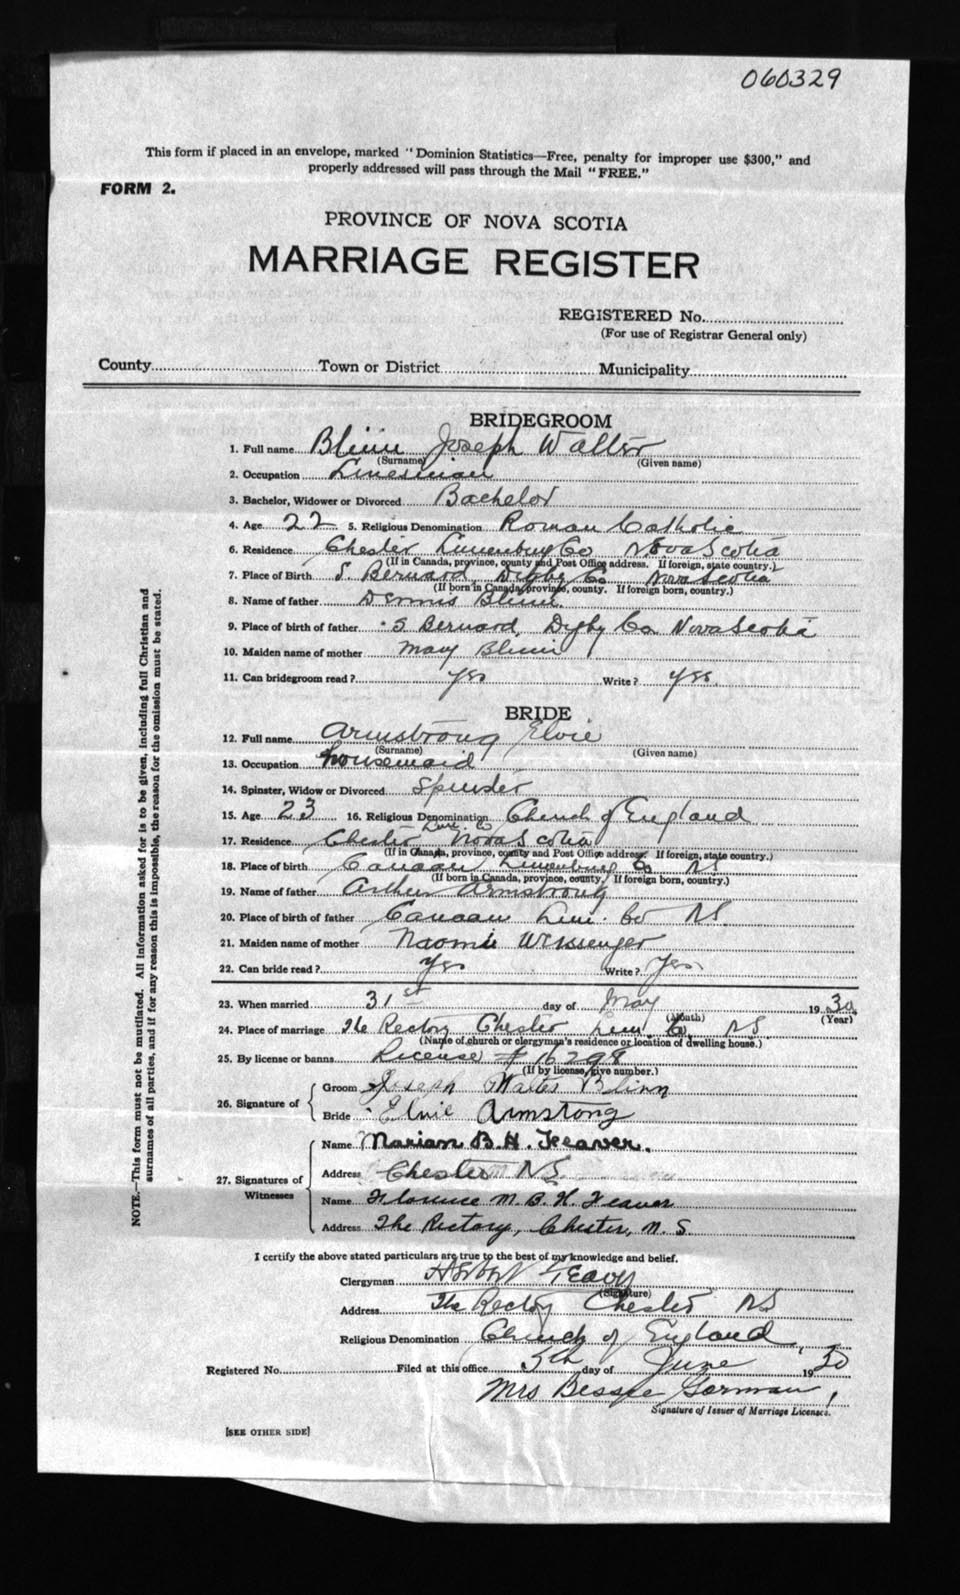 060329
This form if placed in an envelope, marked "Dominion Statistics—Free, penalty for improper use $300," and
properly addressed will pass through the Mail "FREE."
FORM 2.
PROVINCE OF NOVA SCOTIA
MARRIAGE REGISTER
REGISTERED No.
(For use of Registrar General only)
County Town or District Municipality
BRIDEGROOM
1. Full name Blinn Joseph Walter
(Surname) (Given name)
2. Occupation Linesman
3. Bachelor, Widower or Divorced Bachelor
4. Age 22 5. Religious Denomination Roman Catholic
6. Residence Chester Lunenburg Co Nova Scotia
(If in Canada, province, county and Post Office address. If foreign, state country.)
7. Place of Birth S. Bernard Digby Co Nova Scotia
(If born in Canada, province, county. If foreign born, country.)
8. Name of father Dennis Blinn
9. Place of birth of father S. Bernard, Digby Co Nova Scotia
10. Maiden name of mother Mary Blinn
11. Can bridegroom read? yes Write? yes
BRIDE
12. Full name Armstrong Elvie
(Surname) (Given name)
13. Occupation housemaid
14. Spinster, Widow or Divorced Spinster
15. Age 23 16. Religious Denomination Church of England
Lun. Co
17. Residence Chester Nova Scotia
(If in Canada, province, county and Post Office address. If foreign, state country.)
18. Place of birth Canaan Lunenburg Co NS
(If born in Canada, province, county. If foreign born, country.)
19. Name of father Arthur Armstrong
20. Place of birth of father Canaan Lun. Co NS
21. Maiden name of mother Naomie Wessenger
22. Can bride read? Yes Write? Yes
23. When married 31st day of May 1930
(Month) (Year)
24. Place of marriage The Rectory Chester Lun Co. NS
(Name of church or clergyman's residence or location of dwelling house.)
25. By license or banns License # 16298
(If by license, give number.)
26. Signature of Groom Joseph Walter Blinn
Bride Elvie Armstong
27. Signatures of Witnesses Name Marian B. H. Feaver.
Address Chester NS
Name Florence M. B. H. Feaver
Address The Rectory, Chester, N. S.
I certify the above stated particulars are true to the best of my knowledge and belief.
Clergyman Herbert Feaver
(Signature)
Address The Rectory Chester NS
Religious Denomination Church of England
Registered No. Filed at this office 5th day of June 1930
Mrs Bessie Gorman
Signature of Issuer of Marriage Licenses.
[SEE OTHER SIDE]
NOTE.—This form must not be mutilated. All information asked for is to be given, including full Christian and
surnames of all parties, and if for any reason this is impossible, the reason for the omission must be stated.